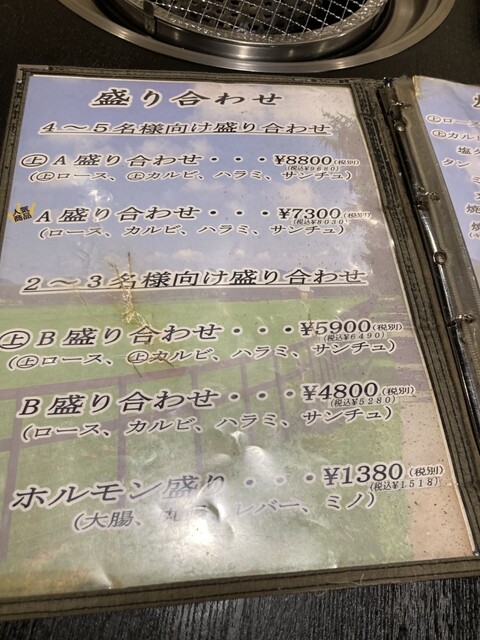 盛り合わせ
4～5名様向け盛り合わせ
㊤A盛り合わせ・・・¥8800(税別)
(税込¥9680)
(㊤ロース、㊤カルビ、ハラミ、サンチュ)
人気商品
A盛り合わせ・・・¥7300(税別)
(税込¥8030)
(ロース、カルビ、ハラミ、サンチュ)
2～3名様向け盛り合わせ
㊤B盛り合わせ・・・¥5900(税別)
(税込¥6490)
(㊤ロース、㊤カルビ、ハラミ、サンチュ)
B盛り合わせ・・・¥4800(税別)
(税込¥5280)
(ロース、カルビ、ハラミ、サンチュ)
ホルモン盛り・・・¥1380(税別)
(税込¥1518)
(大腸、レバー、ミノ)
㊤ロース
㊤カルビ
塩タ
タン